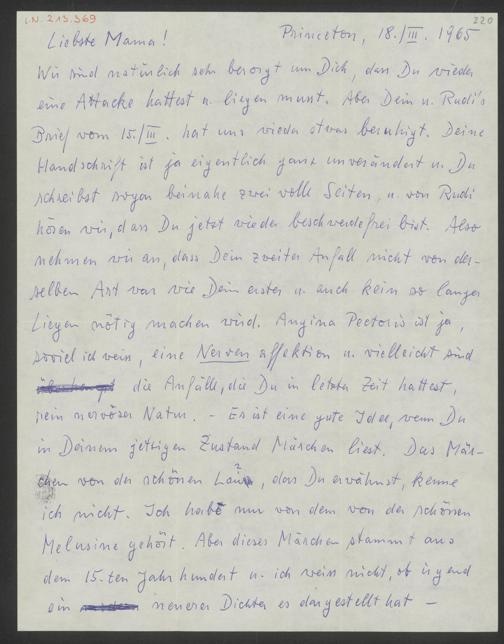 I.N. 213.369
220
Princeton, 18./III. 1965
Liebste Mama!
Wir sind natürlich sehr besorgt um Dich, dass Du wieder
eine Attacke hattest u. liegen musst. Aber Dein u. Rudi's
Brief vom 15./III. hat uns wieder etwas beruhigt. Deine
Handschrift ist ja eigentlich ganz unverändert u. Du
schreibst sogar beinahe zwei volle Seiten, u. von Rudi
hören wir, dass Du jetzt wieder beschwerdefrei bist. Also
nehmen wir an, dass Dein zweiter Anfall nicht von der-
selben Art war wie Dein erster u. auch kein so langes
Liegen nötig machen wird. Angina Pectoris ist ja,
soviel ich weiss, eine Nerven affektion u. vielleicht sind
die Anfälle, die Du in letzter Zeit hattest,
rein nervöser Natur. – Es ist eine gute Idee, wenn Du
in Deinem jetzigen Zustand Märchen liest. Das Mär-
chen von der schönen , das Du erwähnst, kenne
ich nicht. Ich habe nur von dem von der schönen
Melusine gehört. Aber dieses Märchen stammt aus
dem 15.ten Jahrhundert u. ich weiss nicht, ob irgend
ein neuerer Dichter es dargestellt hat –